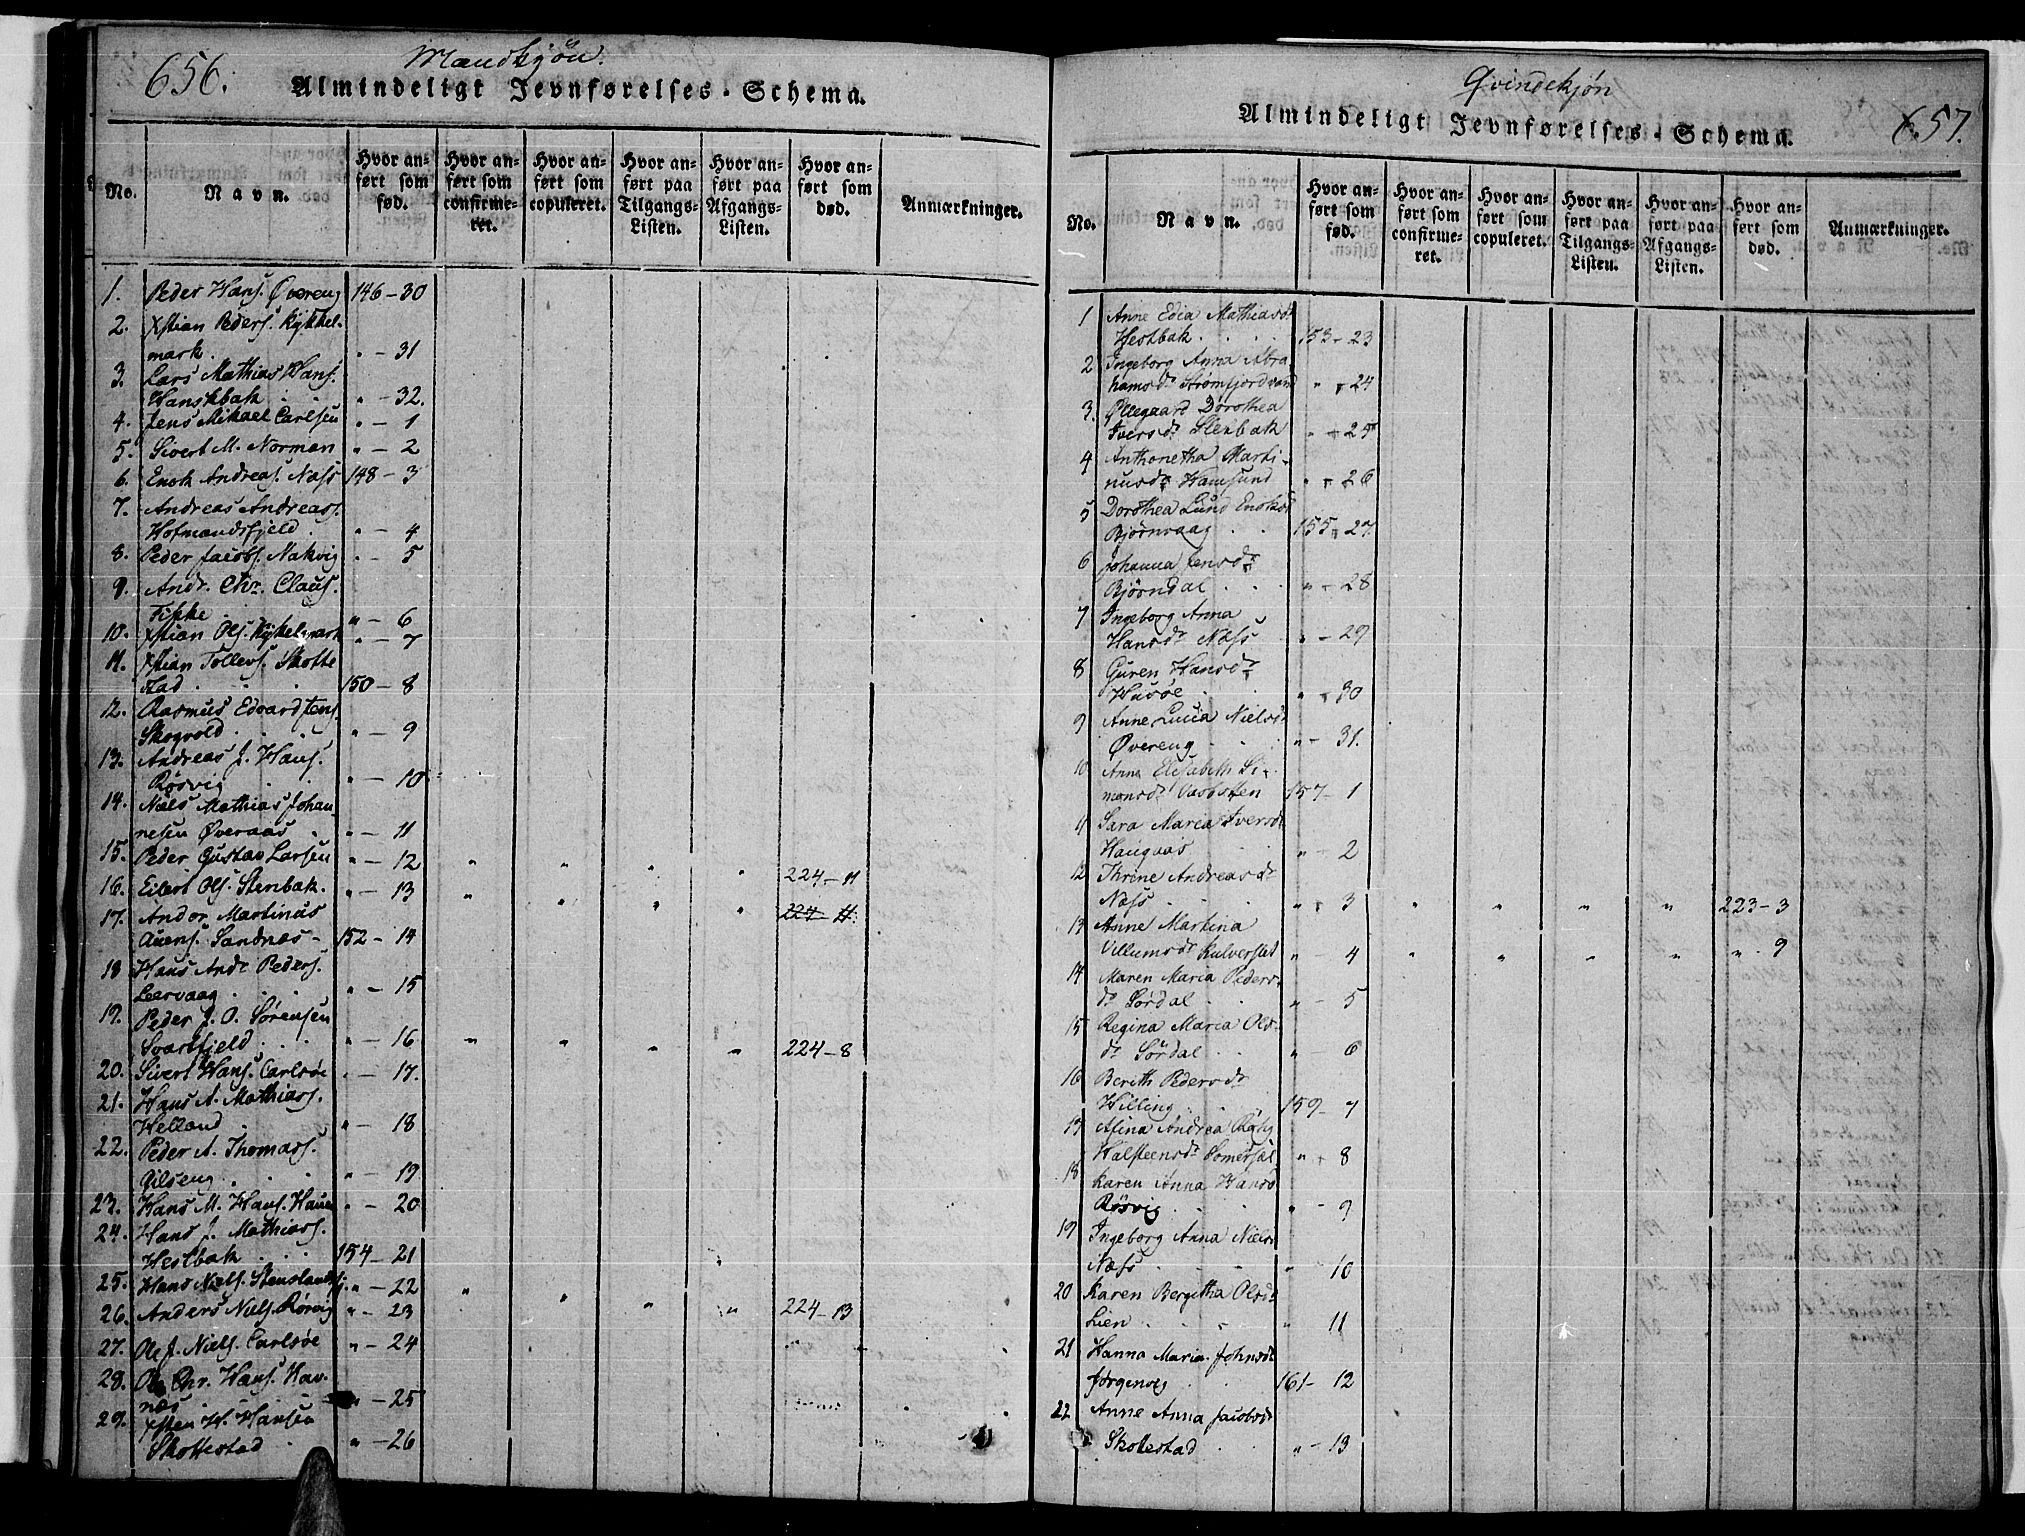 656.
Mandkjøn.
Almindeligt Jevnførelses-Schema.
No.
Navn.
Hvor anført som fød.
Hvor anført som confirmeret.
Hvor anført som copuleret.
Hvor anført paa Tilgangs-Listen.
Hvor anført paa Afgangs-Listen.
Hvor anført som død.
Anmærkninger.
1. Peder Hans. Øvereng 146 - 30
2. Xstian Peders. Kykkel-
mark. " - 31
3. Lars Mathias Hans.
Hanskbak . . " - 32.
4. Jens Mikael Carlsen " - 1
5. Sivert M. Norman " - 2
6. Enok Andreas. Næss 148 - 3
7. Andreas Andreas.
Hofmandsfjeld . " - 4
8. Peder Jacobs. Nakvig " - 5
9. Andr. Chr. Claus.
" - 6
10. Xstian Ols. Kykelmark " - 7
11. Xstian Tollevs. Skotte
stad . . 150 - 8
12. Rasmus Edvard Jens.
Skogvold . . . " - 9
13. Andreas J. Hans.
Røsvig . " - 10
14. Niels Mathias Johan-
nesen Øveraas . " - 11
15. Peder Gustav Larsen " - 12 " " " " 224 - 11
16. Eilert Ols. Stenbak. " - 13 " " " " 224 - 11.
17. Andor Martinus
Auens. Sandnæs - 152 - 14
18 Hans Andr. Peders.
Leervaag . . . " - 15
19. Peder J. O. Sørensen
Svartfjeld . . . " - 16 " " " " 224 - 8
20. Sivert Hans. Carlsøe " - 17.
21. Hans A. Mathias.
Helland . " - 18
22. Peder A. Thomas.
Gilseng . . " - 19
23. Hans M. Hans. " - 20
24. Hans J. Mathias.
Hestbak . . 154 - 21
25. Hans Niels. Stenslandsfj. " - 22 " " " " 224 - 13
26. Anders Niels. Rørvig " - 23
27. Ole J. Niels. Carlsøe " - 24
28. Ole Chr. Hans. Hav-
næs . " - 25
29. Xsten H. Hansen
Skottestad . " - 26
Qvindekjøn
657.
Almindeligt Jevnførelses-Schema.
No.
Navn.
Hvor anført som fød.
Hvor anført som confirmeret.
Hvor anført som copuleret.
Hvor anført paa Tilgangs-Listen.
Hvor anført paa Afgangs-Listen.
Hvor anført som død.
Anmærkninger.
1 Anne Edia Mathiasdr
Hestbak . . . . 153 - 23
2 Ingeborg Anna Abra
hamsdr. Strømfjordvand " - 24
3. Øllegaard Dorothea
Iversdr. Stenbak " - 25
4 Anthonetha Marti-
nusdr. Hamsund " - 26
5 Dorothea Lund Enoksdr
Bjørnvaag . . 155 - 27.
6 Johanna Jensdr.
Bjørndal . . . " - 28
7 Ingeborg Anna
Hansdr Næss " - 29
8 Guren Hansdr.
Husøe . . " - 30
9 Anne Lucia Nielsdr
Øvereng . . . " - 31.
10 Anne Elisabeth Si-
monsdr. Vassten 157 - 1
11 Sara Maria Iversdr
Haugaas . . " - 2
12 Thrine Andreasdr
Næss . . . . " - 3 " " " " 223 - 3
13 Anne Martina
Villumsdr Kulverstad " - 4 " " " " " . 9
14 Maren Maria Peders
dr. Sørdal . . " - 5
15 Regina Maria Ols-
dr. Sørdal . . " - 6
16 Berith Pedersdr
Willing . . . 159 - 7
17 Alina Andrea
Halsteensdr Somersæl " - 8
18 Karen Anna Hans
Røsvig . . . " - 9
19 Ingeborg Anna Niels
Næss . . . . " 10
20 Karen Bergitha Olsdr
Lien . . . . " 11
21 Hanna Maria Johnsdr
Jørgenvig . . 161 - 12
22 Anne Anna Jacobsdr
Skottestad . . " - 13